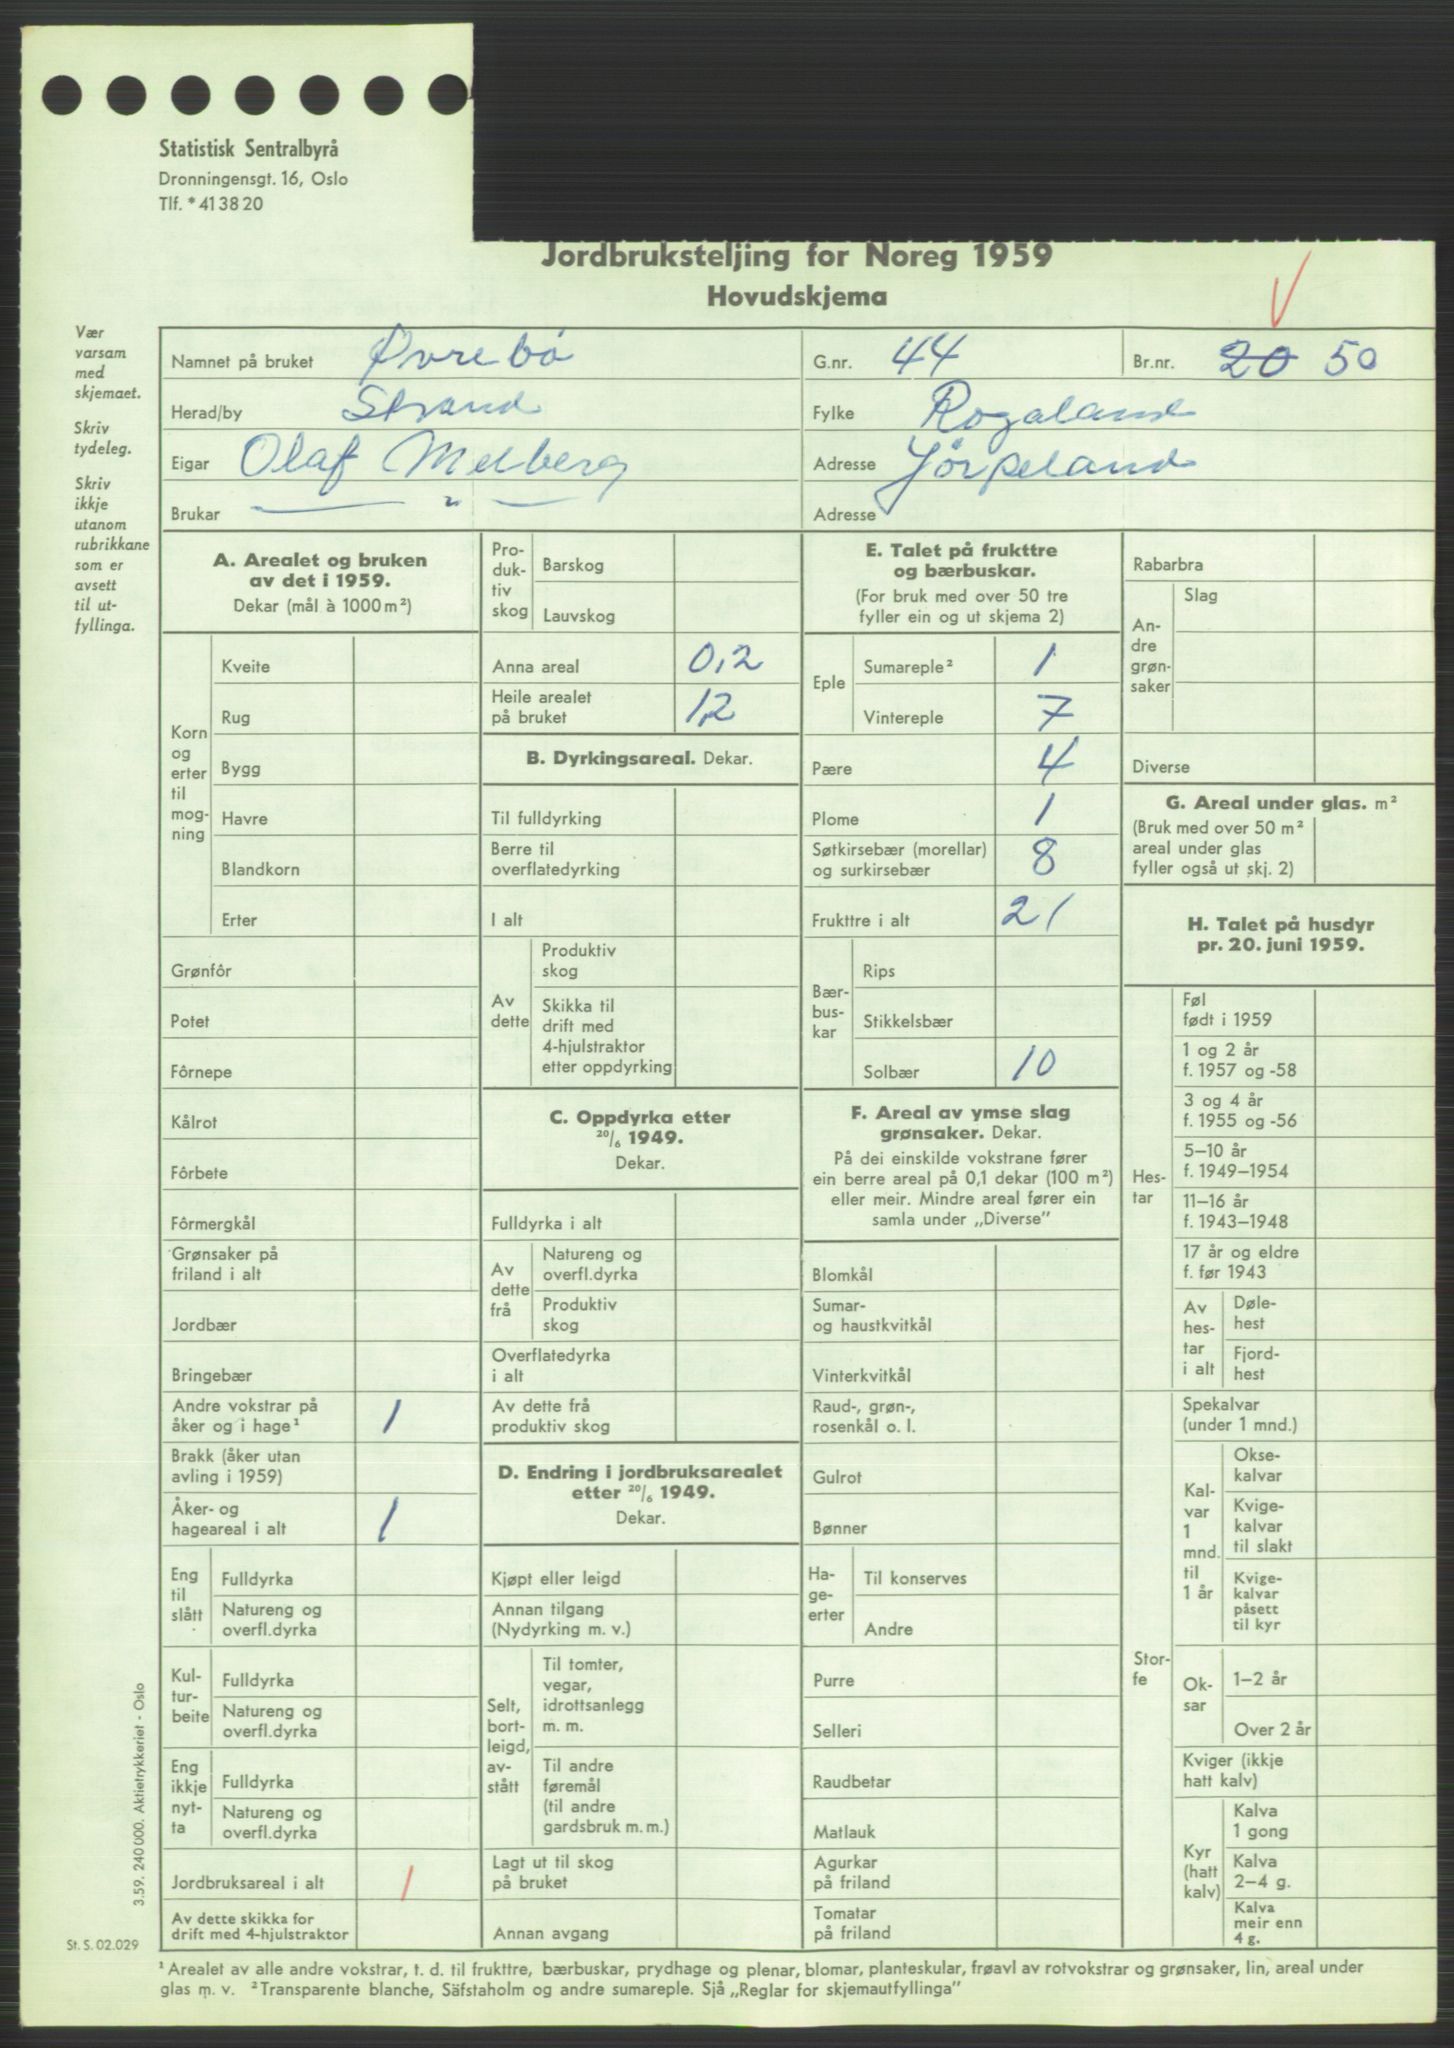 Statistisk Sentralbyrå
Dronningensgt. 16, Oslo
Tlf. * 41 38 20
Jordbruksteljing for Noreg 1959
Hovudskjema
Vær
varsam
med
skjemaet.
Skriv
tydeleg.
Skriv
ikkje
utanom
rubrikkane
som er
avsett
til ut-
fyllinga.
Namnet på bruket Øvrebö G.nr. 44 Br.nr. 20 50
Herad/by Strand Fylke Rogaland
Eigar Olaf Melberg Adresse Jörpeland
Brukar — " — Adresse
A. Arealet og bruken
av det i 1959.
Dekar (mål à 1000 m²)
Korn
og
erter
til
mog-
ning
Kveite
Rug
Bygg
Havre
Blandkorn
Erter
Grønfôr
Potet
Fôrnepe
Kålrot
Fôrbete
Fôrmergkål
Grønsaker på
friland i alt
Jordbær
Bringebær
Andre vokstrar på
åker og i hage¹ 1
Brakk (åker utan
avling i 1959)
Åker- og
hageareal i alt 1
Eng
til
slått
Fulldyrka
Natureng og
overfl.dyrka
Kul-
tur-
beite
Fulldyrka
Natureng og
overfl.dyrka
Eng
ikkje
nyt-
ta
Fulldyrka
Natureng og
overfl.dyrka
Jordbruksareal i alt 1
Av dette skikka for
drift med 4-hjulstraktor
Pro-
duk-
tiv
skog
Barskog
Lauvskog
Anna areal 0,2
Heile arealet
på bruket 1,2
B. Dyrkingsareal. Dekar.
Til fulldyrking
Berre til
overflatedyrking
I alt
Av
dette
Produktiv
skog
Skikka til
drift med
4-hjulstraktor
etter oppdyrking
C. Oppdyrka etter
20/6 1949.
Dekar.
Fulldyrka i alt
Av
dette
frå
Natureng og
overfl.dyrka
Produktiv
skog
Overflatedyrka
i alt
Av dette frå
produktiv skog
D. Endring i jordbruksarealet
etter 20/6 1949.
Dekar.
Kjøpt eller leigd
Annan tilgang
(Nydyrking m. v.)
Selt,
bort-
leigd,
av-
stått
Til tomter,
vegar,
idrottsanlegg
m. m.
Til andre
føremål
(til andre
gardsbruk m. m.)
Lagt ut til skog
på bruket
Annan avgang
E. Talet på frukttre
og bærbuskar.
(For bruk med over 50 tre
fyller ein og ut skjema 2)
Eple
Sumareple² 1
Vintereple 7
Pære 4
Plome 1
Søtkirsebær (morellar)
og surkirsebær 8
Frukttre i alt 21
Bær-
bus-
kar
Rips
Stikkelsbær
Solbær 10
F. Areal av ymse slag
grønsaker. Dekar.
På dei einskilde vokstrane fører
ein berre areal på 0,1 dekar (100 m²)
eller meir. Mindre areal fører ein
samla under „Diverse”
Blomkål
Sumar-
og haustkvitkål
Vinterkvitkål
Raud-, grøn-,
rosenkål o. l.
Gulrot
Bønner
Ha-
ge-
erter
Til konserves
Andre
Purre
Selleri
Raudbetar
Matlauk
Agurkar
på friland
Tomatar
på friland
Rabarbra
An-
dre
grøn-
saker
Slag
Diverse
G. Areal under glas. m²
(Bruk med over 50 m²
areal under glas
fyller også ut skj. 2)
H. Talet på husdyr
pr. 20. juni 1959.
Hes-
tar
Føl
født i 1959
1 og 2 år
f. 1957 og -58
3 og 4 år
f. 1955 og -56
5–10 år
f. 1949–1954
11–16 år
f. 1943–1948
17 år og eldre
f. før 1943
Av
hes-
tar
i alt
Døle-
hest
Fjord-
hest
Stor-
fe
Spekalvar
(under 1 mnd.)
Kal-
var
1
mnd.
til
1 år
Okse-
kalvar
Kvige-
kalvar
til slakt
Kvige-
kalvar
påsett
til kyr
Ok-
sar
1–2 år
Over 2 år
Kviger (ikkje
hatt kalv)
Kyr
(hatt
kalv)
Kalva
1 gong
Kalva
2–4 g.
Kalva
meir enn
4 g.
3.59. 240 000. Aktietrykkeriet - Oslo
St. S. 02.029
¹ Arealet av alle andre vokstrar, t. d. til frukttre, bærbuskar, prydhage og plenar, blomar, planteskular, frøavl av rotvokstrar og grønsaker, lin, areal under
glas m. v. ² Transparente blanche, Säfstaholm og andre sumareple. Sjå „Reglar for skjemautfyllinga”